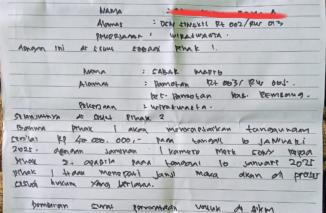 NAMA : 
Alamat : DEN SINGKIL Rt 002/RW 013
PEKERJAAN : WIRASWASTA
Dengan ini di sebut sebagai Pihak 1.
NAMA : SABAR
Alamat : PAMOTAN Rt 003/RW 005.
KEC. PAMOTAN KAB. REMBANG.
Pekerjaan : WIRASWASTA.
Selanjutnya di sebut Pihak 2
Bahwa Pihak 1 akan menyelesaikan tanggungan
senilai Rp 40.000.000,- pada tanggal 10 JANUARI
2025 dengan jaminan 1 kamera merk SONY kepada
Pihak 2. apabila pada tanggal 10 Januari 2025
Pihak 1 tidak menepati janji maka akan di proses
hukum yang berlaku.
Demikian surat pernyataan untuk di